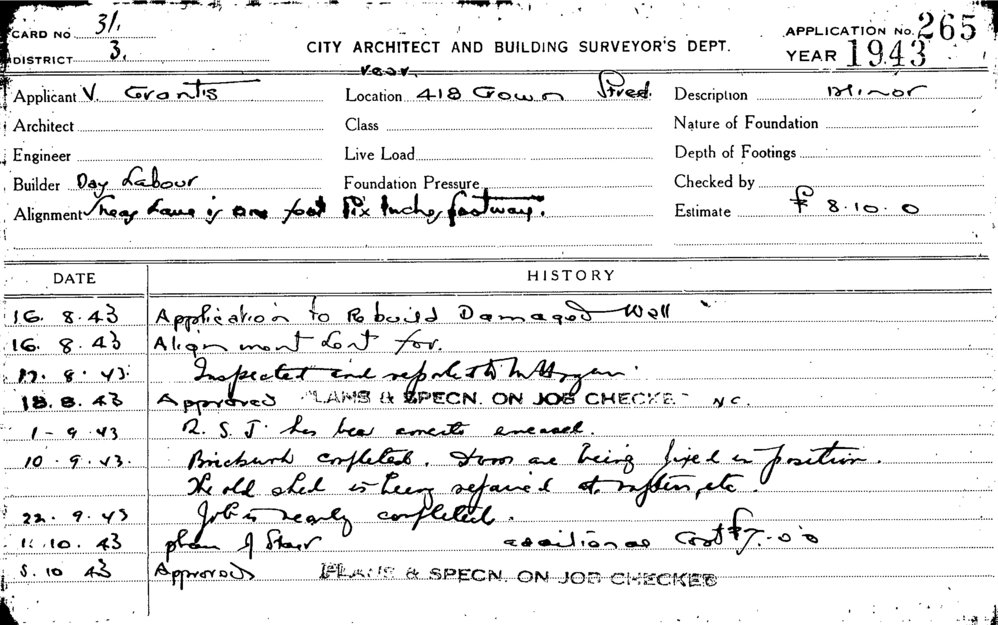 CARD NO 31.
APPLICATION No. 265
DISTRICT 3.
CITY ARCHITECT AND BUILDING SURVEYOR'S DEPT.
YEAR 1943
rear.
Applicant V. Location 418 Street. Description Minor
Architect Class Nature of Foundation
Engineer Live Load Depth of Footings
Builder Day Labour Foundation Pressure Checked by
Alignment is one foot six inches footway. Estimate £ 8.10.0
DATE HISTORY
16. 8. 43 Application to Rebuild Damaged Wall
16. 8. 43 Alignment Sent for.
17. 8. 43. Inspected and reported to Mr
18. 8. 43 Approved PLANS & SPECN. ON JOB CHECKED N.C.
1 - 9 43 R. S. J. has been encased.
10. 9. 43. Brickwork completed. Doors are being fixed in position.
The old shed is being repaired etc.
22. 9. 43 Job is nearly completed.
10. 43 plan of Stair additional Cost £7.0.0
5. 10 43 Approved PLANS & SPECN. ON JOB CHECKED